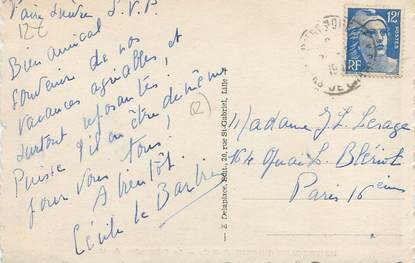 Faire suivre S.V.P
Bien amical
souvenir de nos
vacances agréables, et
surtout reposantes.
Puisse-t'il en être de même
pour vous tous!
A bientôt.
Cécile Le Barbu
E. Delaplace, Édit. 20, rue St-Gabriel, Lille
12F
POSTES
RF
Madame J L Lesage
164 Quai L. Blériot
Paris 16ème